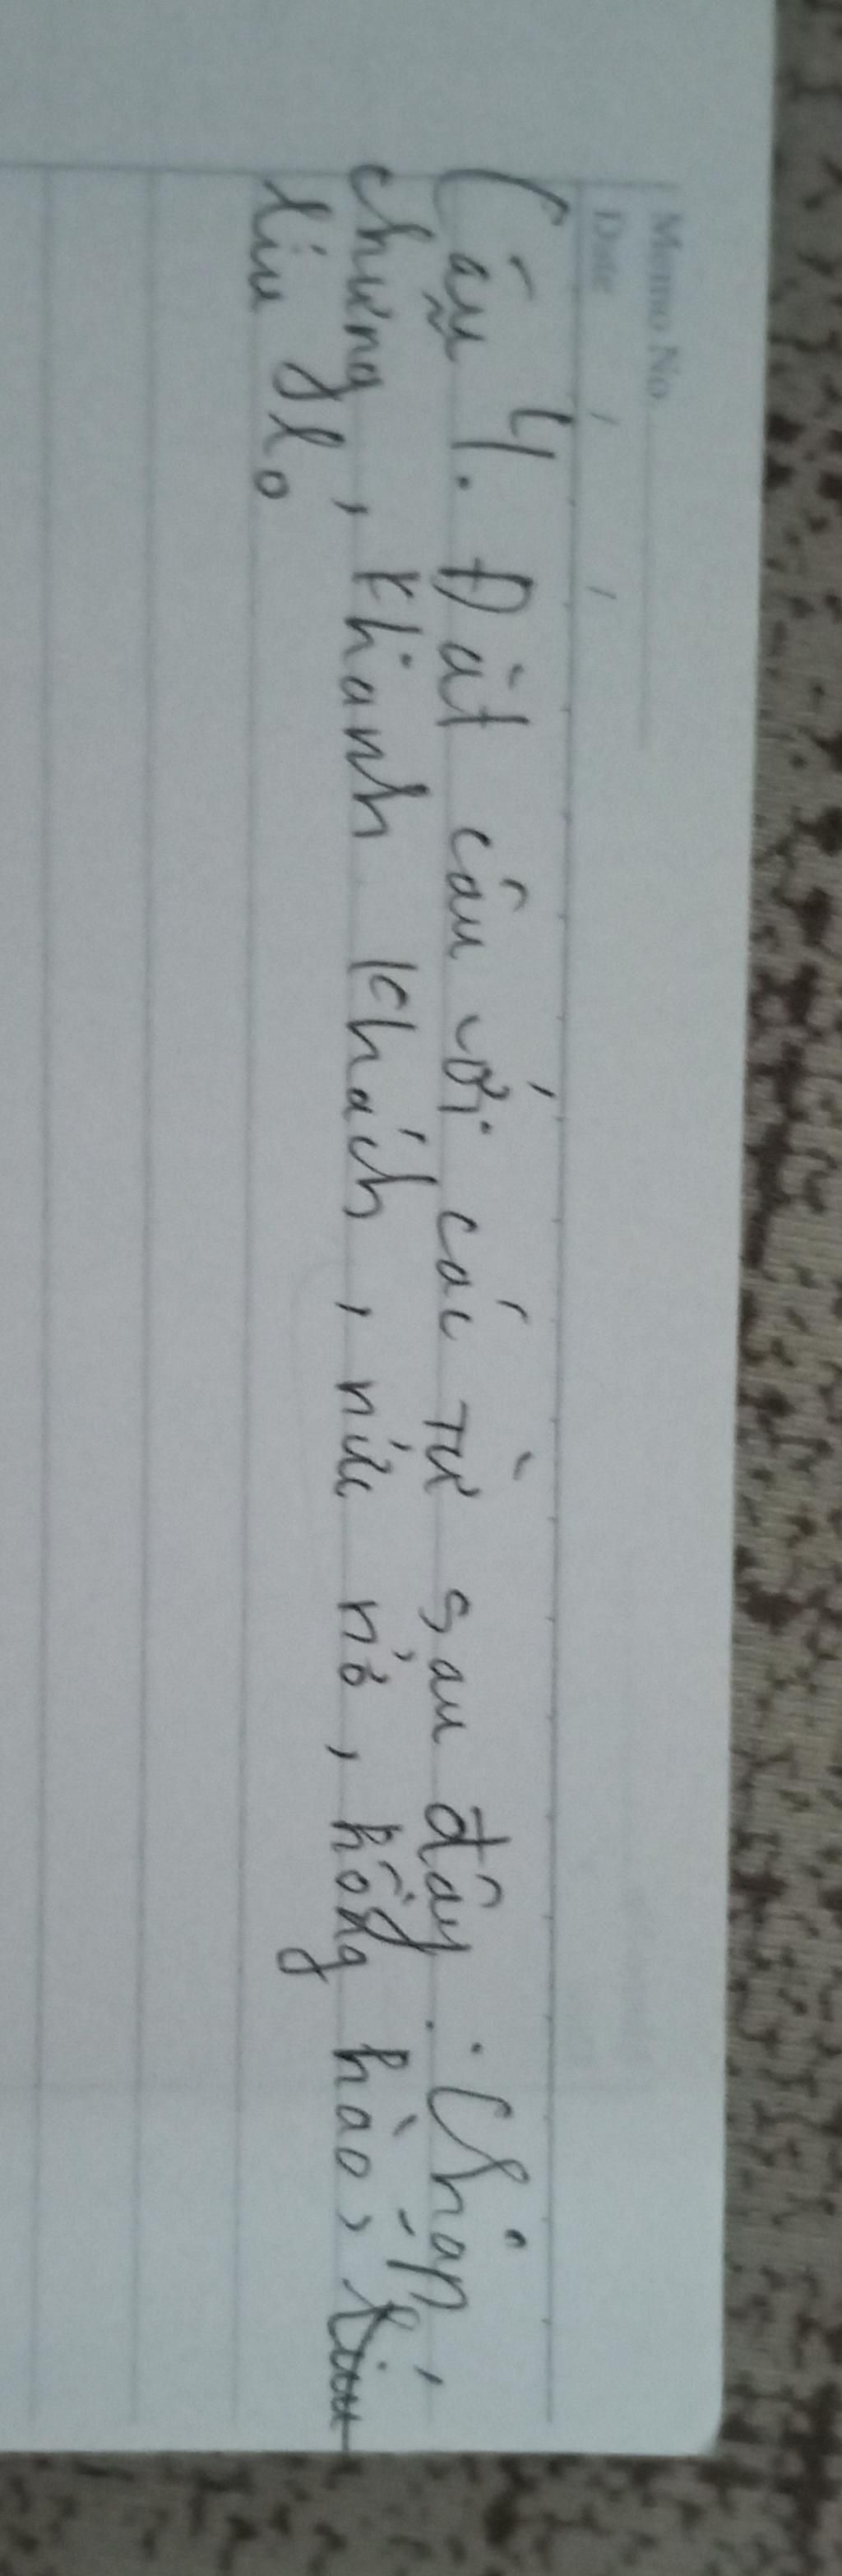 Memo No.
Date / /
Câu 4. Đặt câu với các từ sau đây: Chập
chững, khanh khách, nức nở, hồng hào,
líu